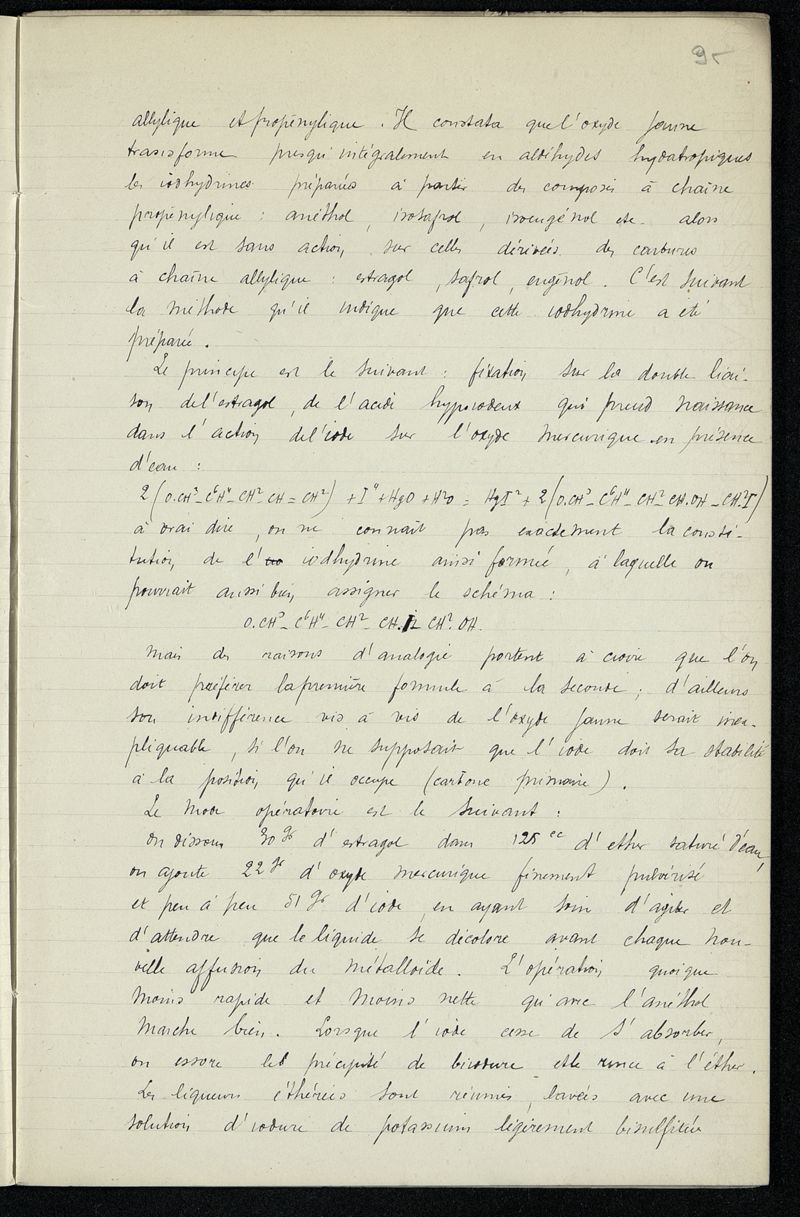 95
allylique et propénylique. Il constata que l'oxyde jaune
transforme presqu'intégralement en aldéhydes hydratropiques
les iodhydrines préparées à partir des composés à chaîne
propénylique : anéthol, isosafrol, isoeugénol etc. alors
qu'il est sans action sur celles dérivées des carbures
à chaîne allylique : estragol, safrol, eugénol. C'est suivant
la méthode qu'il indique que cette iodhydrine a été
préparée.
Le principe est le suivant : fixation sur la double liai-
son de l'estragol, de l'acide hypoiodeux qui prend naissance
dans l'action de l'iode sur l'oxyde mercurique en présence
d'eau :
2(O.CH³-C⁶H⁴-CH²-CH=CH²) + I⁴ + HgO + H²O = HgI² + 2(O.CH³-C⁶H⁴-CH²-CH.OH-CH²I)
à vrai dire, on ne connaît pas exactement la consti-
tution de l'iodhydrine ainsi formée, à laquelle on
pourrait aussi bien assigner le schéma :
O.CH³-C⁶H⁴-CH²-CH.I-CH².OH.
Mais des raisons d'analogie portent à croire que l'on
doit préférer la première formule à la seconde ; d'ailleurs
son indifférence vis à vis de l'oxyde jaune serait inex-
pliquable, si l'on ne supposait que l'iode doit sa stabilité
à la position qu'il occupe (carbone primaire).
Le mode opératoire est le suivant :
On dissous 30 gr d'estragol dans 125 cc d'éther saturé d'eau,
on ajoute 22 gr d'oxyde mercurique finement pulvérisé
et peu à peu 51 gr d'iode, en ayant soin d'agiter et
d'attendre que le liquide se décolore avant chaque nou-
velle affusion du métalloïde. L'opération quoique
moins rapide et moins nette qu'avec l'anéthol
marche bien. Lorsque l'iode cesse de s'absorber,
on essore le précipité de biiodure et le rince à l'éther.
Les liqueurs éthérées sont réunies, lavées avec une
solution d'iodure de potassium légèrement bisulfitée